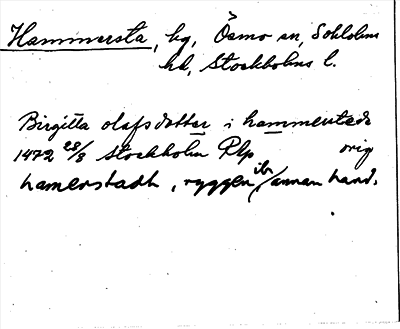 Hammersta, hg, Ösmo sn, Sotholms
hd, Stockholms l.
Birgitta olafsdotter i hammerstade
1472 28/8 Stockholm Plp orig
hamerstadh, ryggen ibr/annan hand.